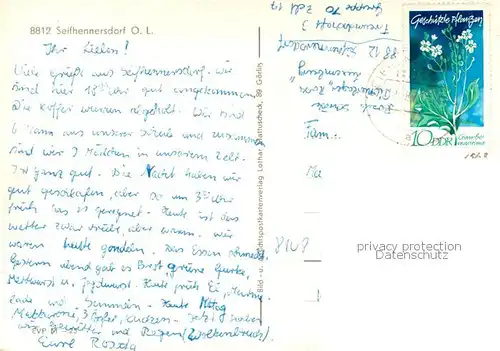 8812 Seifhennersdorf O. L.
Ihr Lieben!
Viele Grüße aus Seifhennersdorf. Wir
sind hier 18 Uhr gut angekommen.
Die Koffer waren abgeholt. Wir sind
6 Mann aus unserer Schule und zusammen
sind wir 9 Mädchen in unserem Zelt.
Ist ganz gut. Die Nacht haben wir
gut geschlafen, aber so um 3 Uhr
früh hat es geregnet. Heute ist das
Wetter zwar trübe, aber warm. Wir
waren heute gondeln. Das Essen schmeckt.
Gestern abend gab es Brot, grüne Gurke,
Mettwurst u. Jagdwurst. Heute früh Ei,
lade und Semmeln. Heute Mittag
Makkaroni, Kuchen. Jetzt haben
wir Gewitter und Regen (Wolkenbruch).
Eure
Bild - u. Ansichtspostkartenverlag Lothar Kattuscheck, 89 Görlitz
Gruppe 70 Zelt 17
8812 Seifhennersdorf
Fam.:
8148
Geschützte Pflanzen
10 DDR
maritima
privacy protection
Datenschutz